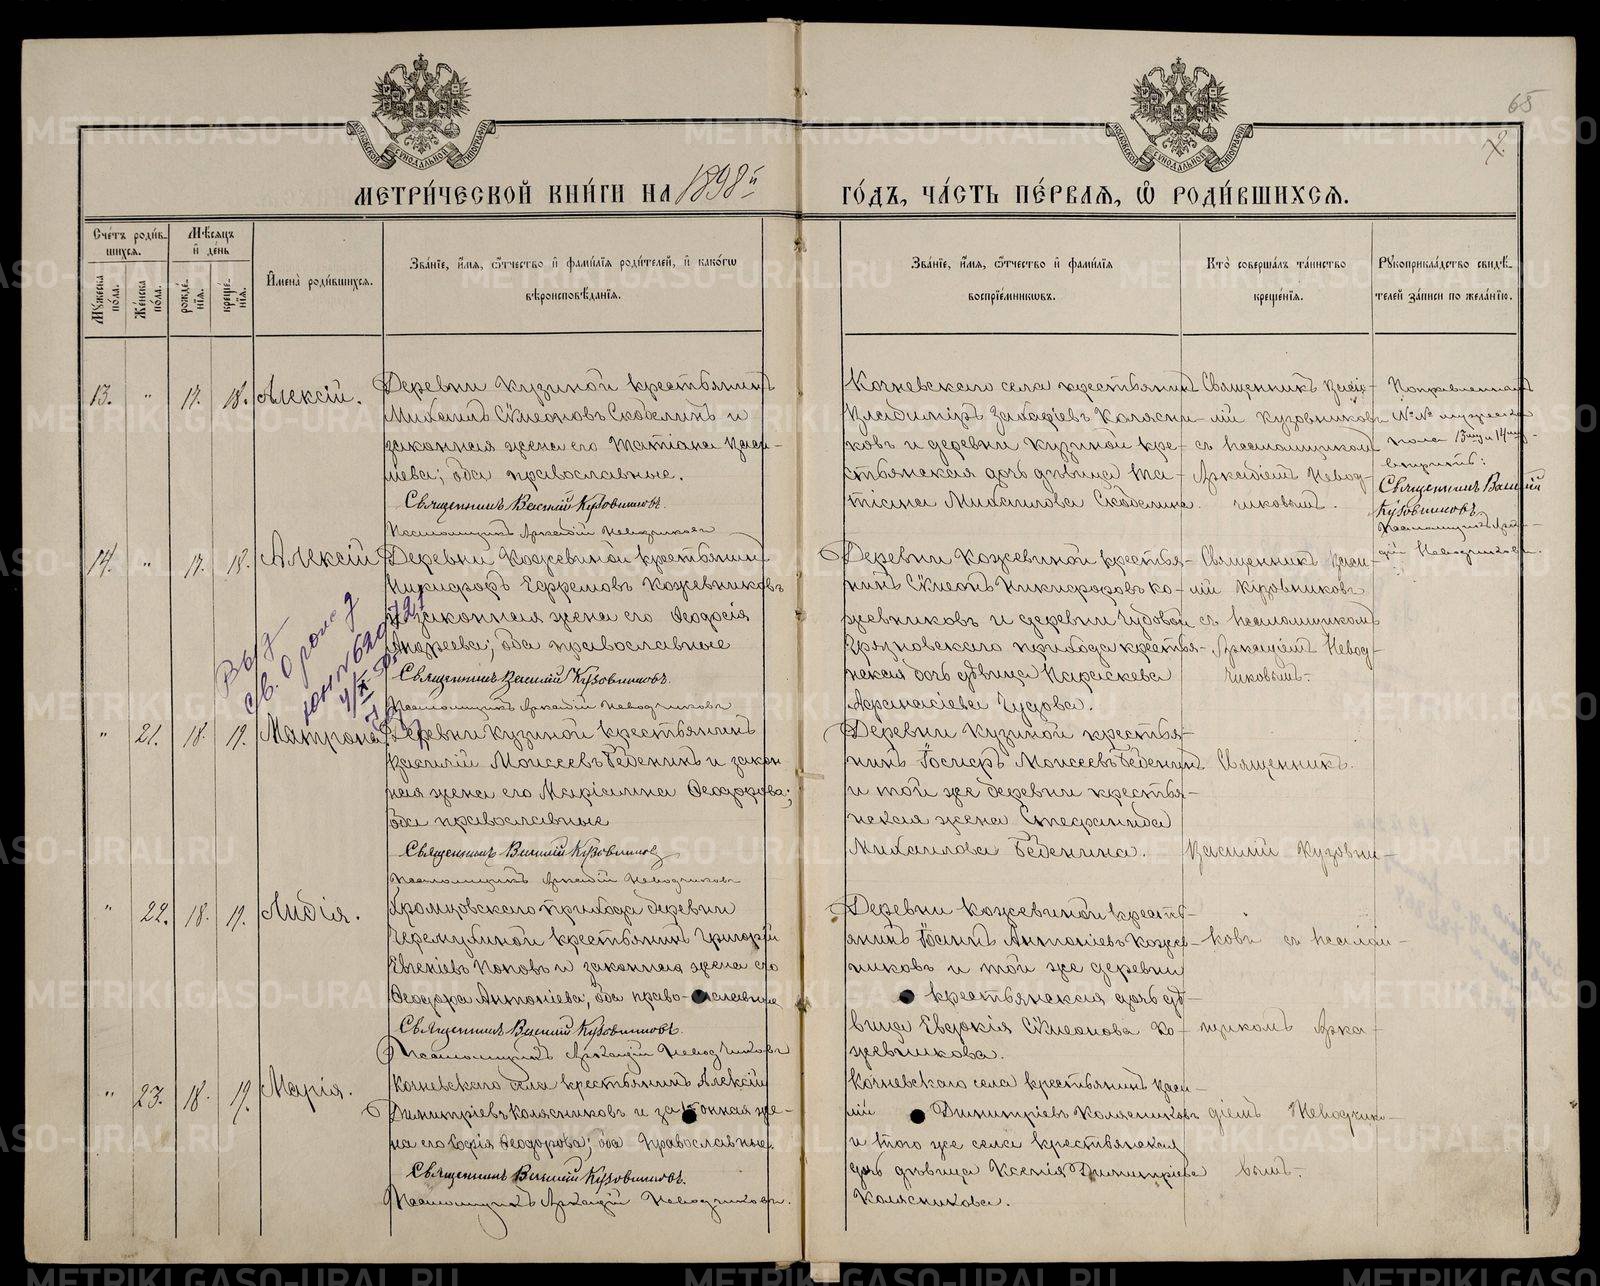 65
МЕТРИ́ЧЕСКОЙ КНИ́ГИ НА 1898й
ГО́ДЪ, ЧА́СТЬ ПЕ́РВАѦ, Ѡ РОДИ́ВШИХСѦ.
Сче́тъ роди́в-
шихсѧ.
Мѣсѧцъ
и де́нь
Мꙋжеска по́ла.
Же́нска по́ла.
рожде́-
нїѧ.
креще́-
нїѧ.
Имена̀ роди́вшихсѧ.
Зва́нїе, и́мѧ, ѻ́тчество и фами́лїѧ роди́телей, и како́гѡ
вѣроисповѣ́данїѧ.
Зва́нїе, и́мѧ, ѻ́тчество и фами́лїѧ
воспрїе́мниковъ.
Кто̀ соверша́лъ та́инство
креще́нїѧ.
Рꙋкоприкла́дство свидѣ́-
телей за́писи по жела́нїю.
13. " 17. 18. Алексій.
Деревни Кузиной крестьянинъ
Михаилъ Сѵмеоновъ Скобелинъ и
законная жена его Татіана Васи-
лiева; оба православные.
Священникъ Василій Кузовниковъ.
Псаломщикъ Аркадій Неводчиковъ
Кочневскаго села крестьянинъ
Владиміръ Захаріевъ Колясни-
ковъ и деревни Кузиной кре-
стьянская дочь дѣвица Та-
тіана Михаилова Скобелина.
Священникъ Васи-
лій Кузовниковъ
съ псаломщикомъ
Аркадіемъ Невод-
чиковымъ.
Поправленнымъ
№№ мужеска
пола 13му и 14му
вѣрить:
Священникъ Василій
Кузовниковъ
Псаломщикъ Арка-
дій Неводчиковъ.
14. " 17. 18. Алексій
Деревни Кожевиной крестьянинъ
Никифоръ Ефремовъ Кожевниковъ
и законная жена его Ѳеодосія
Андреева; оба православные
Священникъ Василій Кузовниковъ.
Псаломщикъ Аркадій Неводчиковъ
Деревни Кожевиной крестья-
нинъ Сѵмеонъ Никифоровъ Ко-
жевниковъ и деревни Чудовой
Грязновскаго прихода крестья-
нская дочь дѣвица Параскева
Афанасіева Чудова.
Священникъ Васи-
лій Кузовниковъ
съ псаломщикомъ
Аркадіемъ Невод-
чиковымъ.
св. О рожд
" 21. 18. 19. Матрона
Деревни Кузиной крестьянинъ
Василій Моисеевъ Бѣденинъ и закон
ная жена его Маріамна Ѳеодорова;
оба православные
Священникъ Василій Кузовниковъ
Псаломщикъ Аркадій Неводчиковъ
Деревни Кузиной крестья-
нинъ Іосифъ Моисеевъ Бѣденинъ
и той же деревни крестья-
нская жена Стефанида
Михаилова Бѣденина.
Священникъ
Василій Кузовни-
" 22. 18. 19. Лидія.
Хромцовскаго прихода деревни
Черемухиной крестьянинъ Григорій
Евгеніевъ Поповъ и законная жена его
Ѳеодора Антоніева; оба православные
Священникъ Василій Кузовниковъ.
Псаломщикъ Аркадій Неводчиковъ
Деревни Кожевиной кресть-
янинъ Іосифъ Антоніевъ Коже-
никовъ и той же деревни
крестьянская дочь дѣ-
вица Евдокія Сѵмеонова Ко-
жевникова.
ковъ съ псалом-
щикомъ Арка-
" 23. 18. 19. Марія.
Кочневскаго села крестьянинъ Алексій
Димитріевъ Колясниковъ и законная же-
на его Софія Ѳеодорова; оба православные.
Священникъ Василій Кузовниковъ.
Псаломщикъ Аркадій Неводчиковъ.
Кочневскаго села крестьянинъ Васи-
лій Димитріевъ Колясниковъ
и того же села крестьянская
дочь дѣвица Ксенія Димитріева
Колясникова.
діемъ Неводчико-
вымъ.
METRIKI.GASO-URAL.RU